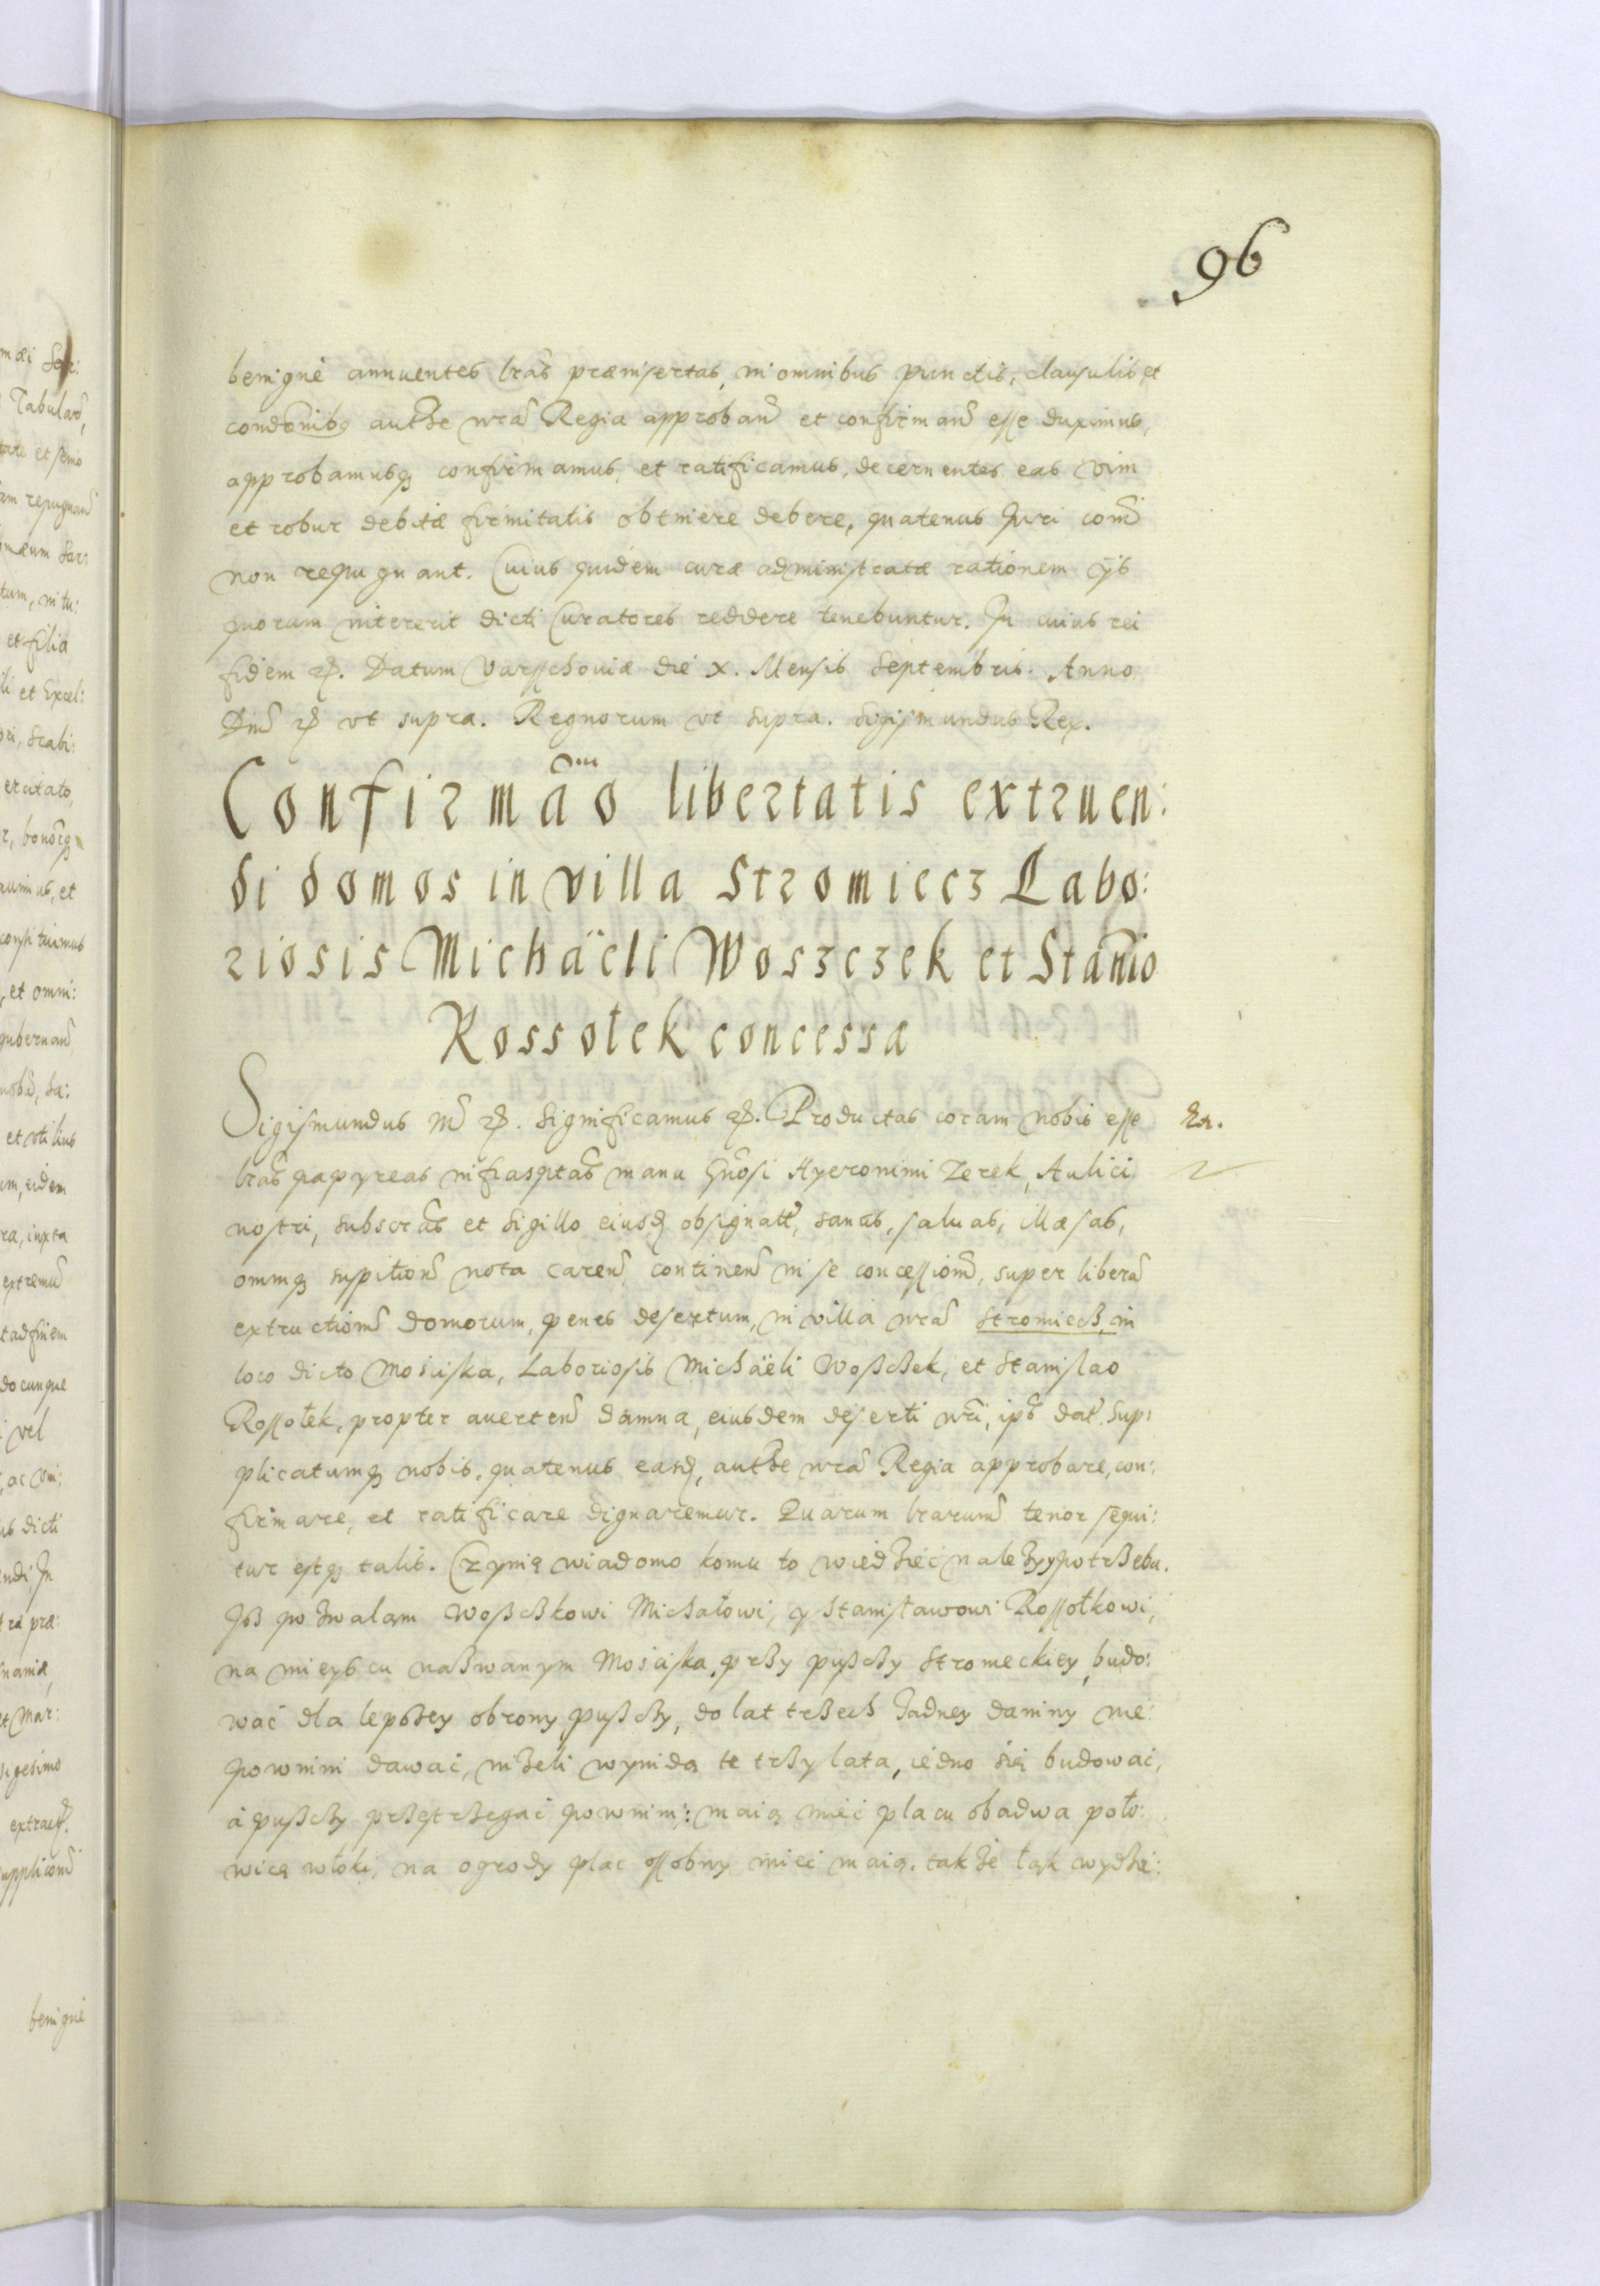 96
benignè annuentes lrãs præinsertas, in omnibus punctis, clausulis, et
condõnibq authe nrã Regia approband et confirmand esse duximus,
approbamusq confirmamus, et ratificamus, decernentes eas vim
et robur debitæ firmitatis obtinere debere, quatenus Juri com̃
non repugnant. Cuius quidem curæ administratæ rationem ijs
quorum intererit dicti Curatores reddere tenebuntur. In cuius rei
fidem etc. Datum Varsschoviæ die X. Mensis Septembris. Anno
Dnĩ etc ut supra. Regnorum ut supra. Sigismundus Rex.
Confirmão libertatis extruen:
di domos in villa Stromiecz Labo:
riosis Michaëli Woszczek et Stanĩo
Rossołek concessa
Sigismundus III etc. Significamus etc. Productas coram nobis esse
lrãs papyreas infrascptas manu Gnosi Hyeronimi Zerek, Aulici
nostri, subscrãs et sigillo eiusd obsignatt, sanas, saluas, illæsas,
omniq suspition nota caren continen in se concession, super libera
extruction domorum, penes desertum, in villa nrã Stromiecß, in
loco dicto Mościska, Laboriosis Michaëli Woßcßek, et Stanislao
Rossołek, propter auerten damna, eiusdem deserti nrĩ, ips dat. Sup:
plicatumq nobis, quatenus easd, authe nrã Regia approbare, con:
firmare, et ratificare dignaremur. Quarum lrarum tenor sequi:
tur estq talis. Czynię wiadomo komu to wiedzieć należy y potrßeba.
Iß pozwalam Woßcßkowi Michałowi, y Stanisławowi Rossołkowi,
na mieyscu naßwanym Mościska, prßy pußcßy Stromeckiey, budo:
wać dla lepßey obrony pußcßy, do lat trßech żadney daniny nie
powinni dawać, niżeli wynidą te trßy lata, iedno się budować,
à pußcßy prßestrßegać powinni: maią mieć placu obadwa poło:
wicę włoki, na ogrody plac ossobny mieć maią. także łąk wydzie:
benignè